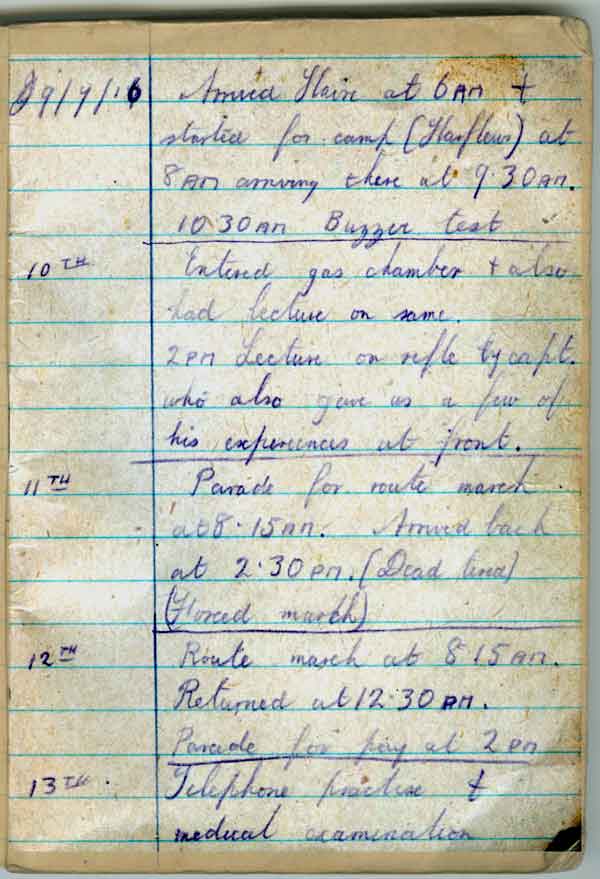 9/9/16 Arrived Havre at 6 AM +
started for camp (Harfleur) at
8 AM arriving there at 9.30 AM.
10.30 AM Buzzer test
10TH Entered gas chamber + also
had lecture on same.
2 PM Lecture on rifle by capt.
who also gave us a few of
his experiences at front.
11TH Parade for route march
at 8.15 AM. Arrived back
at 2.30 PM. (Dead tired)
(Forced march)
12TH Route march at 8.15 AM.
Returned at 12.30 PM.
Parade for pay at 2 PM
13TH Telephone practise +
medical examination